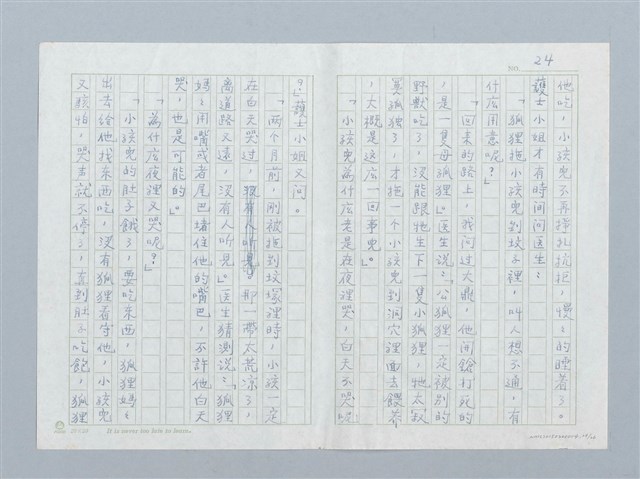 24
NO.
他吃，小孩兒不再掙扎抗拒，慢々的睡着了。
護士小姐才有時間问医生：
「狐狸拖小孩兒到坟子裡，叫人想不通，有
什庅用意呢？」
「回来的路上，我问过大鼎，他開鎗打死的
，是一隻母狐狸。」医生说：「公狐狸一定被别的
野獸吃了，沒能跟牠生下一隻小狐狸，牠太寂
寞孤独了，才拖一个小孩兒到洞穴裡面去餵养
，大概是这庅一回事兒。」
「小孩兒為什庅老是在夜裡哭，白天不哭呢
？」護士小姐又问。
「两个月前，剛被拖到坟塚裡時，小孩一定
在白天哭过，那一帶太荒凉了，
离道路又遠，沒有人听見。」医生猜测说：「狐狸
媽々用嘴或者尾巴堵住他的嘴巴，不許他白天
哭，也是可能的。」
「為什庅夜裡又哭呢？」
「小孩兒的肚子餓了，要吃东西，狐狸媽々
出去给他找东西吃，沒有狐狸看守他，小孩兒
又窮怕，哭声就不停了，直到肚子吃飽，狐狸
25×12
It is never too late to learn.